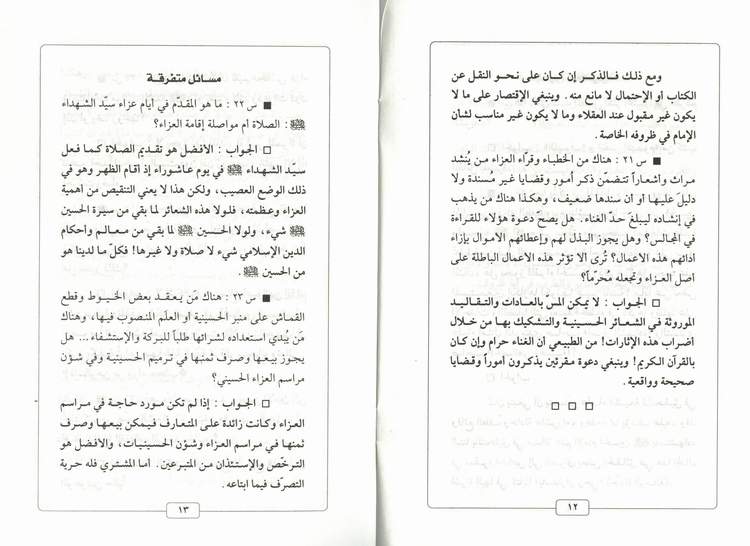 ومع ذلك فالذكر إن كان على نحو النقل عن
الكتاب أو الإحتمال لا مانع منه. وينبغي الإقتصار على ما لا
يكون غير مقبول عند العقلاء وما لا يكون غير مناسب لشأن
الإمام في ظروفه الخاصة.
■ س ٢١ : هناك من الخطباء وقرّاء العزاء من يُنشد
مراث وأشعاراً تتضمّن ذكر أمور وقضايا غير مُسندة ولا
دليل عليها أو أن سندها ضعيف، وهكذا هناك من يذهب
في إنشاده ليبلغ حدّ الغناء. هل يصحّ دعوة هؤلاء للقراءة
في المجالس؟ وهل يجوز البذل لهم وإعطائهم الأموال بإزاء
أدائهم هذه الأعمال؟ تُرى ألا تؤثر هذه الأعمال الباطلة على
أصل العزاء وتجعله مُحرّماً؟
□ الجواب : لا يمكن المسّ بالعادات والتقاليد
الموروثة في الشعائر الحسينية والتشكيك بها من خلال
أضراب هذه الإثارات! من الطبيعي أن الغناء حرام وإن كان
بالقرآن الكريم! وينبغي دعوة مقرئين يذكرون أموراً وقضايا
صحيحة وواقعية.
□ □ □
١٢
مسائل متفرقة
■ س ٢٢ : ما هو المقدّم في أيام عزاء سيّد الشهداء
ﷺ : الصلاة أم مواصلة إقامة العزاء؟
□ الجواب : الأفضل هو تقديم الصلاة كما فعل
سيّد الشهداء ﷺ في يوم عاشوراء إذ أقام الظهر وهو في
ذلك الوضع العصيب، ولكن هذا لا يعني التنقيص من أهمية
العزاء وعظمته، فلولا هذه الشعائر لما بقي من سيرة الحسين
ﷺ شيء، ولولا الحسين ﷺ لما بقي من معالم وأحكام
الدين الإسلامي شيء لا صلاة ولا غيرها! فكلّ ما لدينا هو
من الحسين ﷺ.
■ س ٢٣ : هناك مَن يعقد بعض الخيوط وقطع
القماش على منبر الحسينية أو العلَم المنصوب فيها، وهناك
مَن يُبدي استعداده لشرائها طلباً للبركة والإستشفاء... هل
يجوز بيعها وصرف ثمنها في ترميم الحسينية وفي شؤن
مراسم العزاء الحسيني؟
□ الجواب : إذا لم تكن مورد حاجة في مراسم
العزاء وكانت زائدة على المتعارف فيمكن بيعها وصرف
ثمنها في مراسم العزاء وشؤن الحسينيات، والأفضل هو
الترخّص والإستئذان من المتبرعين. أما المشتري فله حرية
التصرّف فيما ابتاعه.
١٣